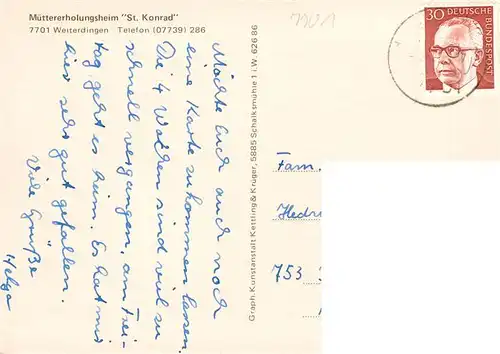 Müttererholungsheim "St. Konrad"
7701 Weiterdingen Telefon (07739) 286
7701
30 DEUTSCHE BUNDESPOST
Möchte Euch auch noch
eine Karte zukommen lassen.
Die 4 Wochen sind viel zu
schnell vergangen, am Frei-
tag geht es heim. Es hat mir
hier sehr gut gefallen.
Viele Grüße
Helga
Graph. Kunstanstalt Kettling & Krüger, 5885 Schalksmühle 1 i. W. 626 86
Fam.
753